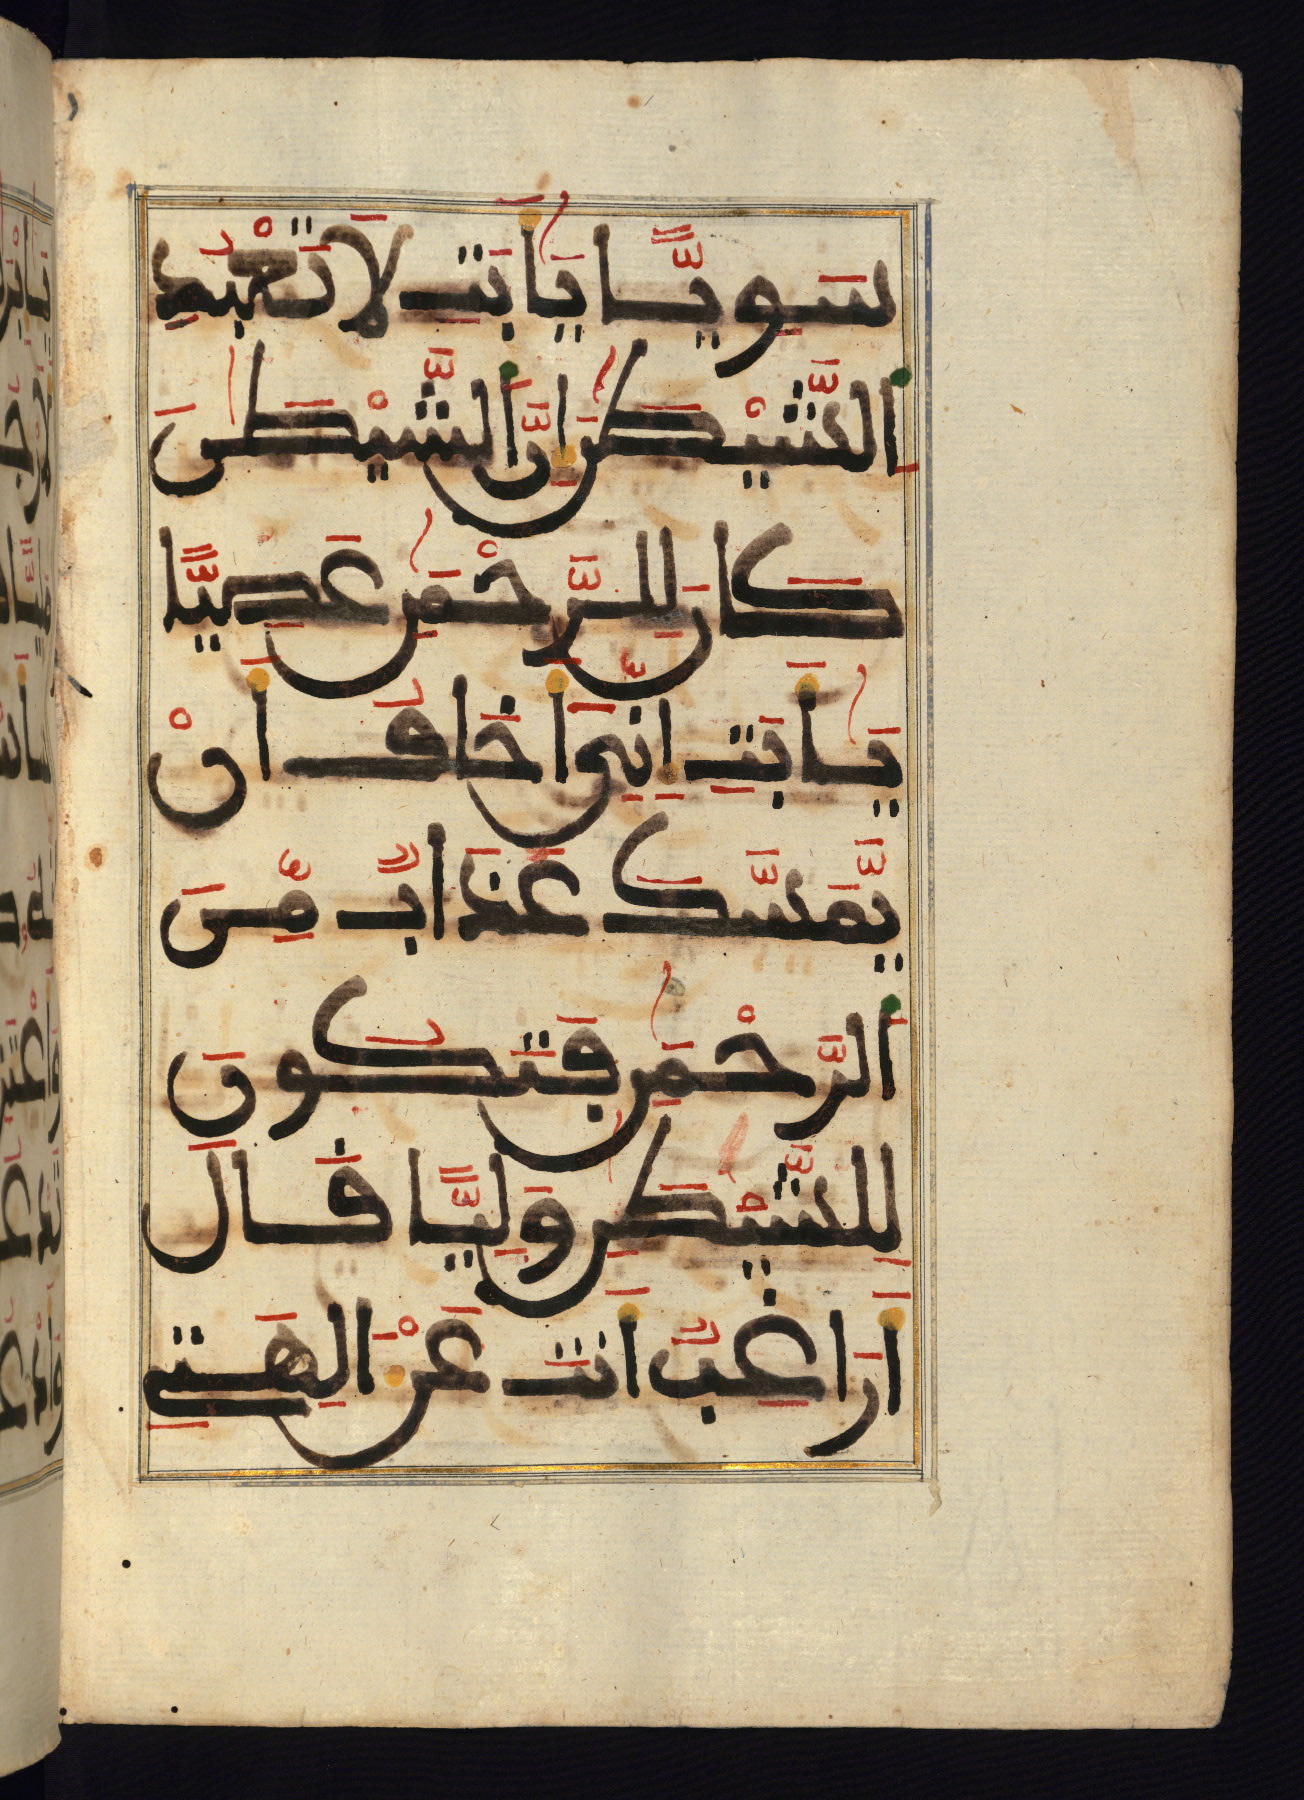 سَوِيًّا يَٰأَبَتِ لَا تَعْبُدِ
اِ۬لشَّيْطَٰنَ إِنَّ اَ۬لشَّيْطَٰنَ
كَانَ لِلرَّحْمَٰنِ عَصِيًّا
يَٰأَبَتِ إِنِّيَ أَخَافُ أَنْ
يَّمَسَّكَ عَذَابٌ مِّنَ
اَ۬لرَّحْمَٰنِ فَتَكُونَ
لِلشَّيْطَٰنِ وَلِيًّا قَالَ
أَرَاغِبٌ اَنتَ عَنْ اٰلِهَتِے